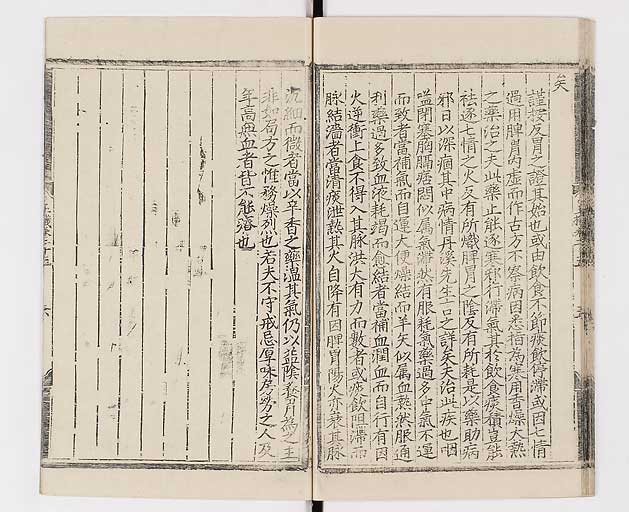 矣
謹按反胃之證其始也或由飲食不節痰飲停滯或因七情
過用脾胃內虛而作古方不察病因悉指為寒用香燥大熱
之藥治之夫此藥止能逐寒邪行滯氣其於飲食痰積豈能
祛逐七情之火反有所熾脾胃之陰反有所耗是以藥助病
邪日以深痼其中病情丹溪先生言之詳矣夫治此疾也咽
嗌閉塞胸膈痞悶似属氣滯然有服耗氣藥過多中氣不運
而致者當補氣而自運大便燥結而羊矢似属血熱然服通
利藥過多致血液耗竭而愈結者當補血潤血而自行有因
火逆衝上食不得入其脉洪大有力而數者或痰飲阻滯而
脉結濇者當清痰泄熱其火自降有因脾胃陽火亦衰其脉
沉細而微者當以辛香之藥溫其氣仍以益陰養胃為之主
非如局方之惟務燥烈也若夫不守戒忌厚味房勞之人及
年高無血者皆不能療也